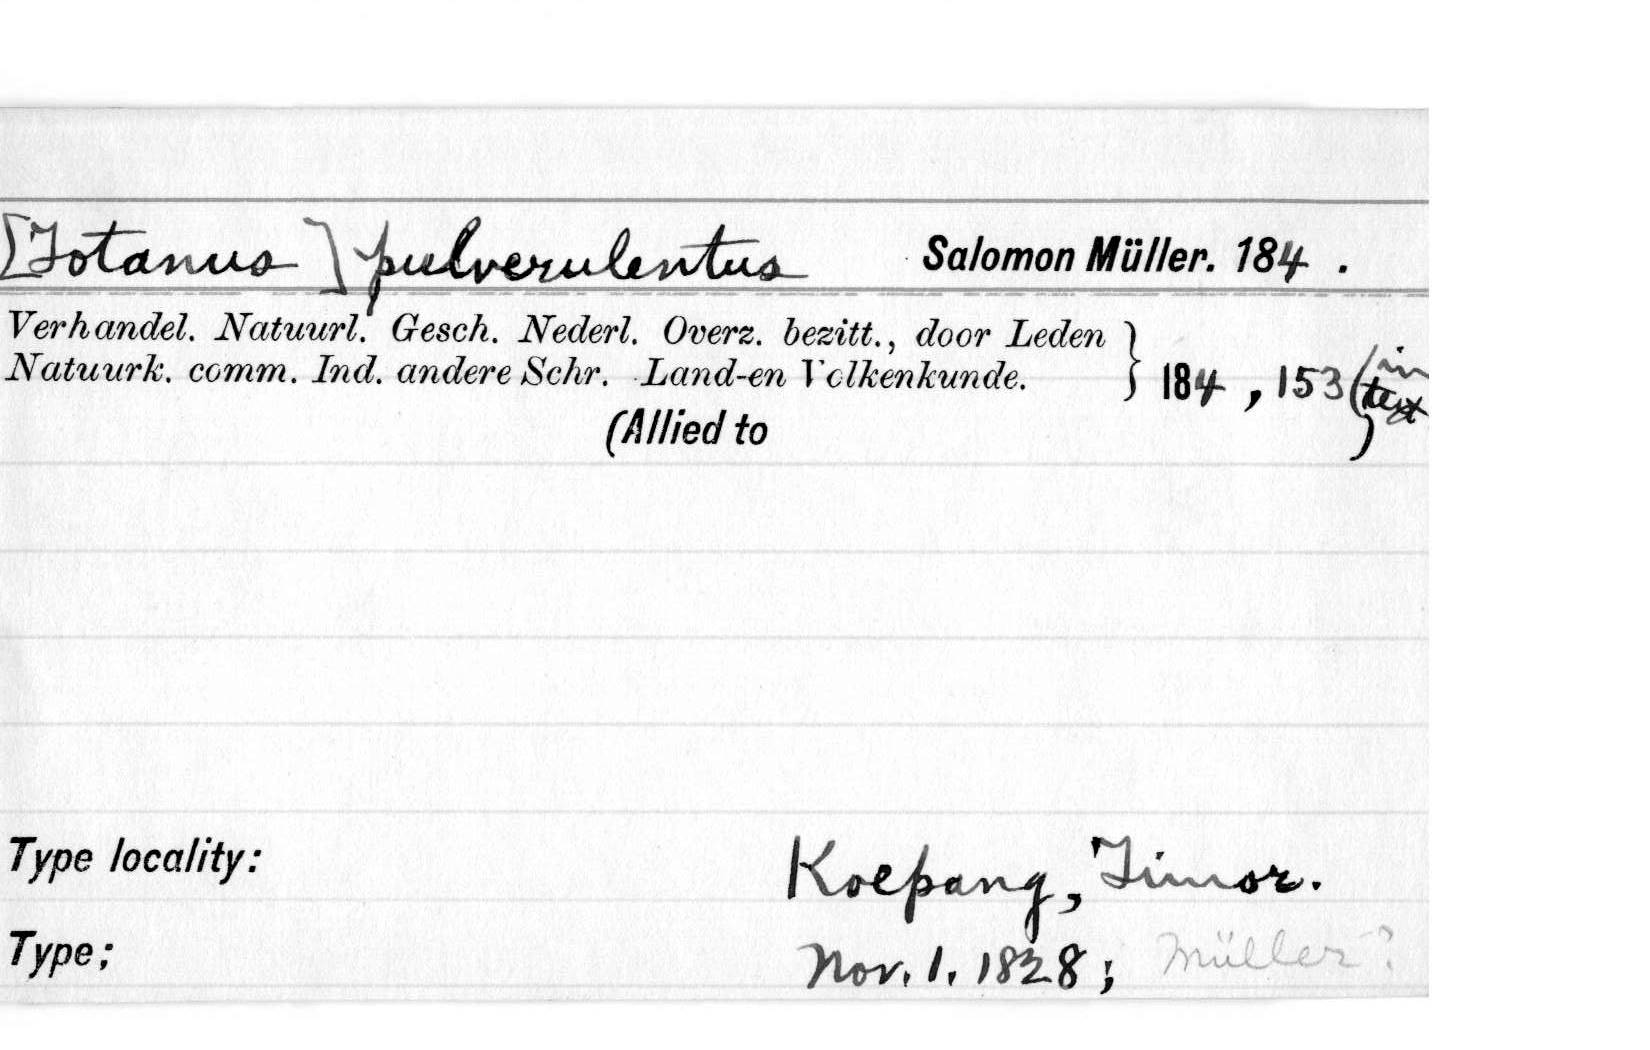 [Totanus] pulverulentus Salomon Müller. 184 .
Verhandel. Natuurl. Gesch. Nederl. Overz. bezitt., door Leden
Natuurk. comm. Ind. andere Schr. Land-en Volkenkunde. } 184 , 153 (in text)
(Allied to
Type locality: Koepang, Timor.
Type; Nov. 1. 1828; Müller?